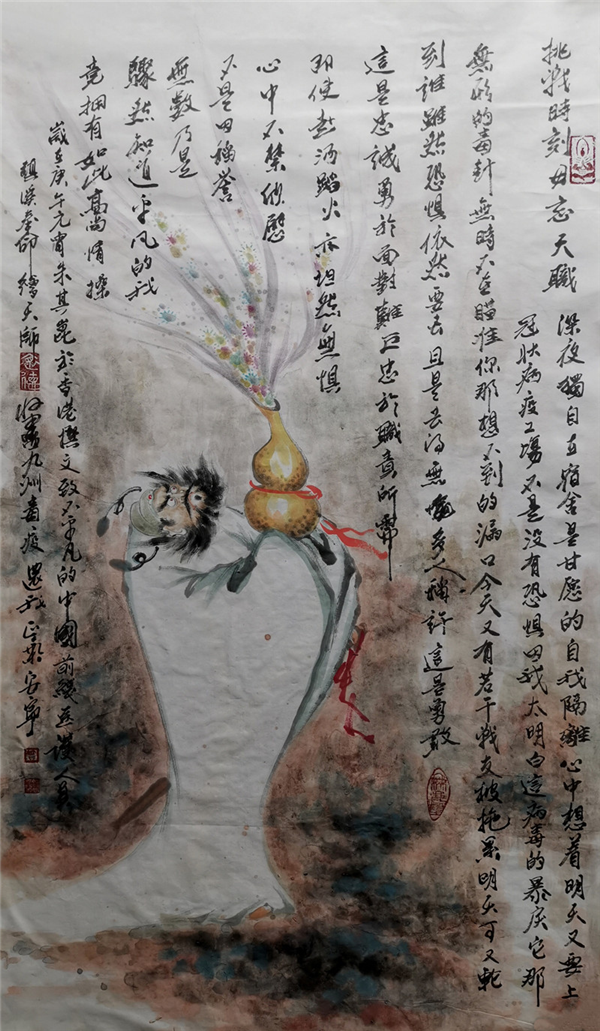 挑戰時刻毋忘天職
深夜獨自在宿舍是甘愿的自我隔離心中想着明天又要上
冠狀病疫工場不是沒有恐惧因我太明白這病毒的暴戾它那
無形的毒針無時不在瞄准你那想不到的漏口今天又有若干戰友被拖累明天可又輪
到誰雖然恐惧依然要去且是去得無悔多人稱許這是勇敢
這是忠誠勇於面對難巨忠於職責所需
即使赴湯蹈火亦坦然無惧
心中不禁欣慰
不是因稱誉
無數乃是
驟然知道平凡的我
竟拥有如此高尚情操
歲在庚午元宵朱其崑於香港撰文致不平凡的中國前綫医護人員
繪天師 九洲毒疫還我 安寧